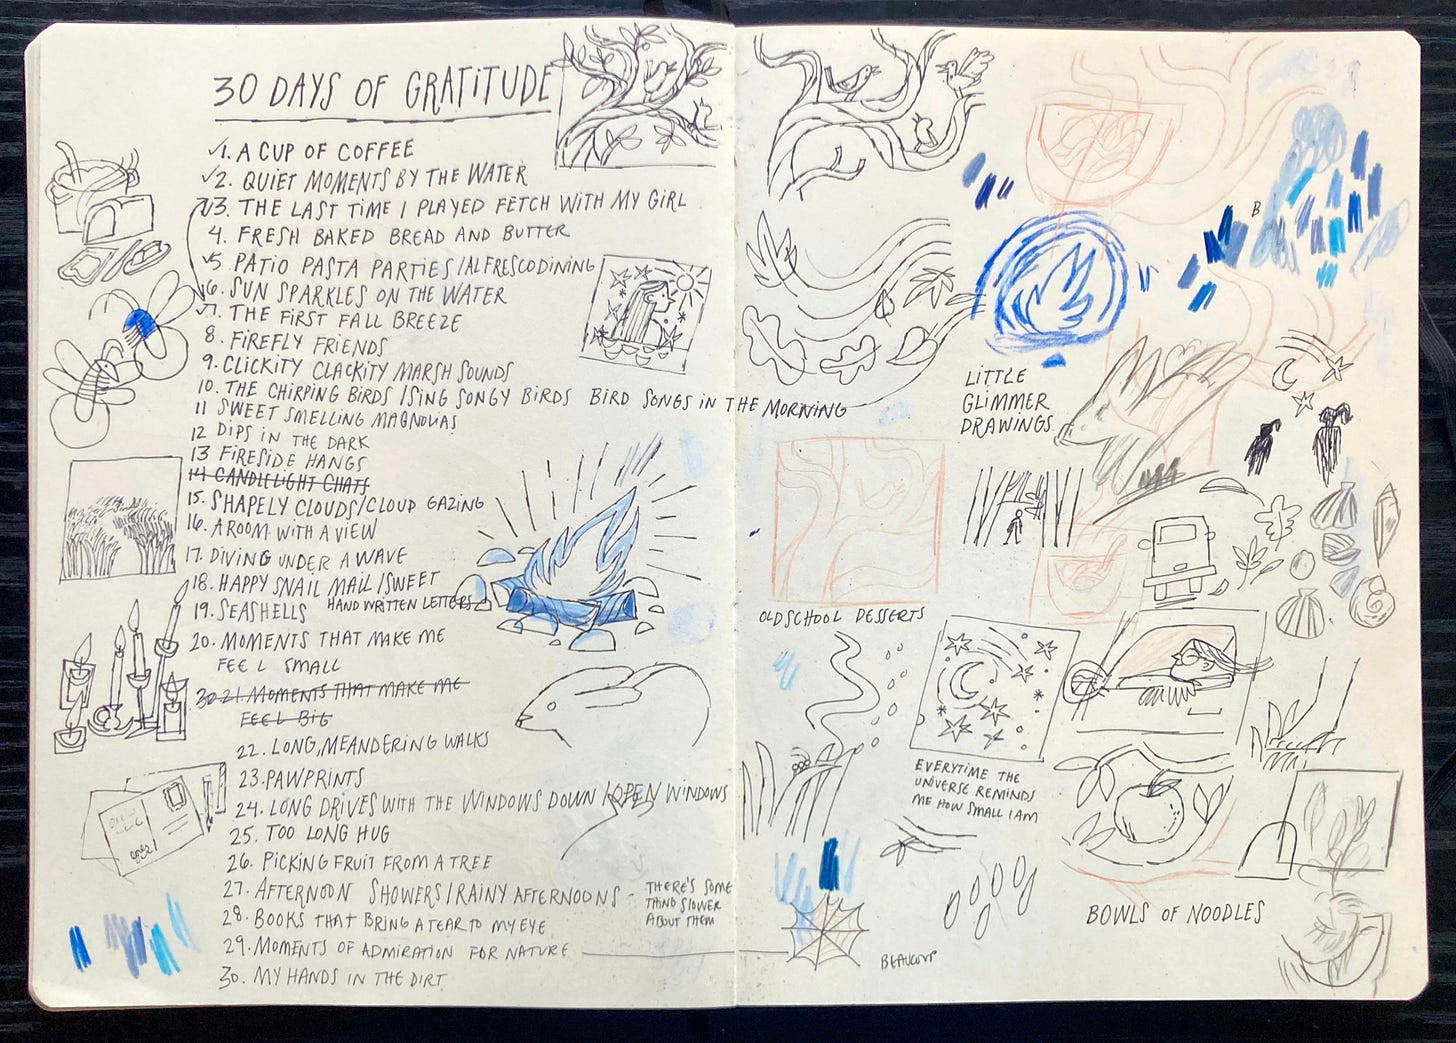 30 DAYS OF GRATITUDE
✓1. A CUP OF COFFEE
✓2. QUIET MOMENTS BY THE WATER
✓3. THE LAST TIME I PLAYED FETCH WITH MY GIRL
4. FRESH BAKED BREAD AND BUTTER
✓5 PATIO PASTA PARTIES/ALFRESCO DINING
✓6. SUN SPARKLES ON THE WATER
✓7. THE FIRST FALL BREEZE
8. FIREFLY FRIENDS
9. CLICKITY CLACKITY MARSH SOUNDS
10. THE CHIRPING BIRDS/SING SONGY BIRDS BIRD SONGS IN THE MORNING
11 SWEET SMELLING MAGNOLIAS
12 DIPS IN THE DARK
13 FIRESIDE HANGS
14 CANDLELIGHT CHATS
15. SHAPELY CLOUDS/CLOUD GAZING
16. A ROOM WITH A VIEW
17. DIVING UNDER A WAVE
18. HAPPY SNAIL MAIL/SWEET
HAND WRITTEN LETTERS
19. SEASHELLS
20. MOMENTS THAT MAKE ME
FEEL SMALL
21. MOMENTS THAT MAKE ME
FEEL BIG
22. LONG, MEANDERING WALKS
23. PAWPRINTS
24. LONG DRIVES WITH THE WINDOWS DOWN/OPEN WINDOWS
25. TOO LONG HUG
26. PICKING FRUIT FROM A TREE
27. AFTERNOON SHOWERS/RAINY AFTERNOONS -
THERE'S SOME
THING SLOWER
ABOUT THEM
28. BOOKS THAT BRING A TEAR TO MY EYE
29. MOMENTS OF ADMIRATION FOR NATURE
30. MY HANDS IN THE DIRT
B
LITTLE
GLIMMER
DRAWINGS
OLD SCHOOL DESSERTS
EVERYTIME THE
UNIVERSE REMINDS
ME HOW SMALL I AM
BOWLS OF NOODLES